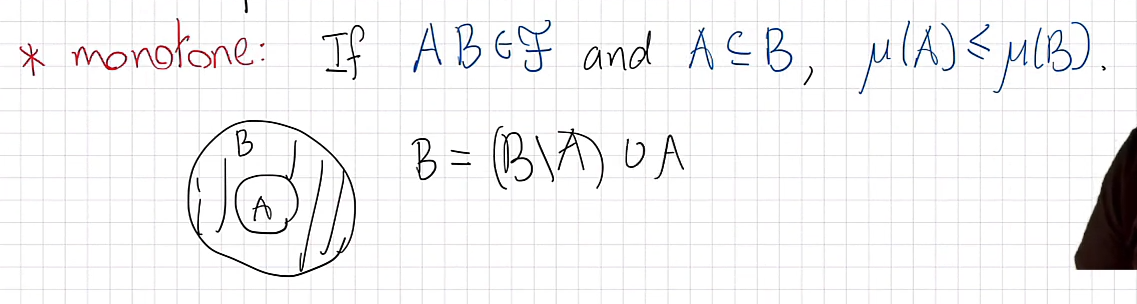 * monotone: If A B ∈ ℱ and A ⊆ B, μ(A) ≤ μ(B).
B
B = (B\A) ∪ A
A